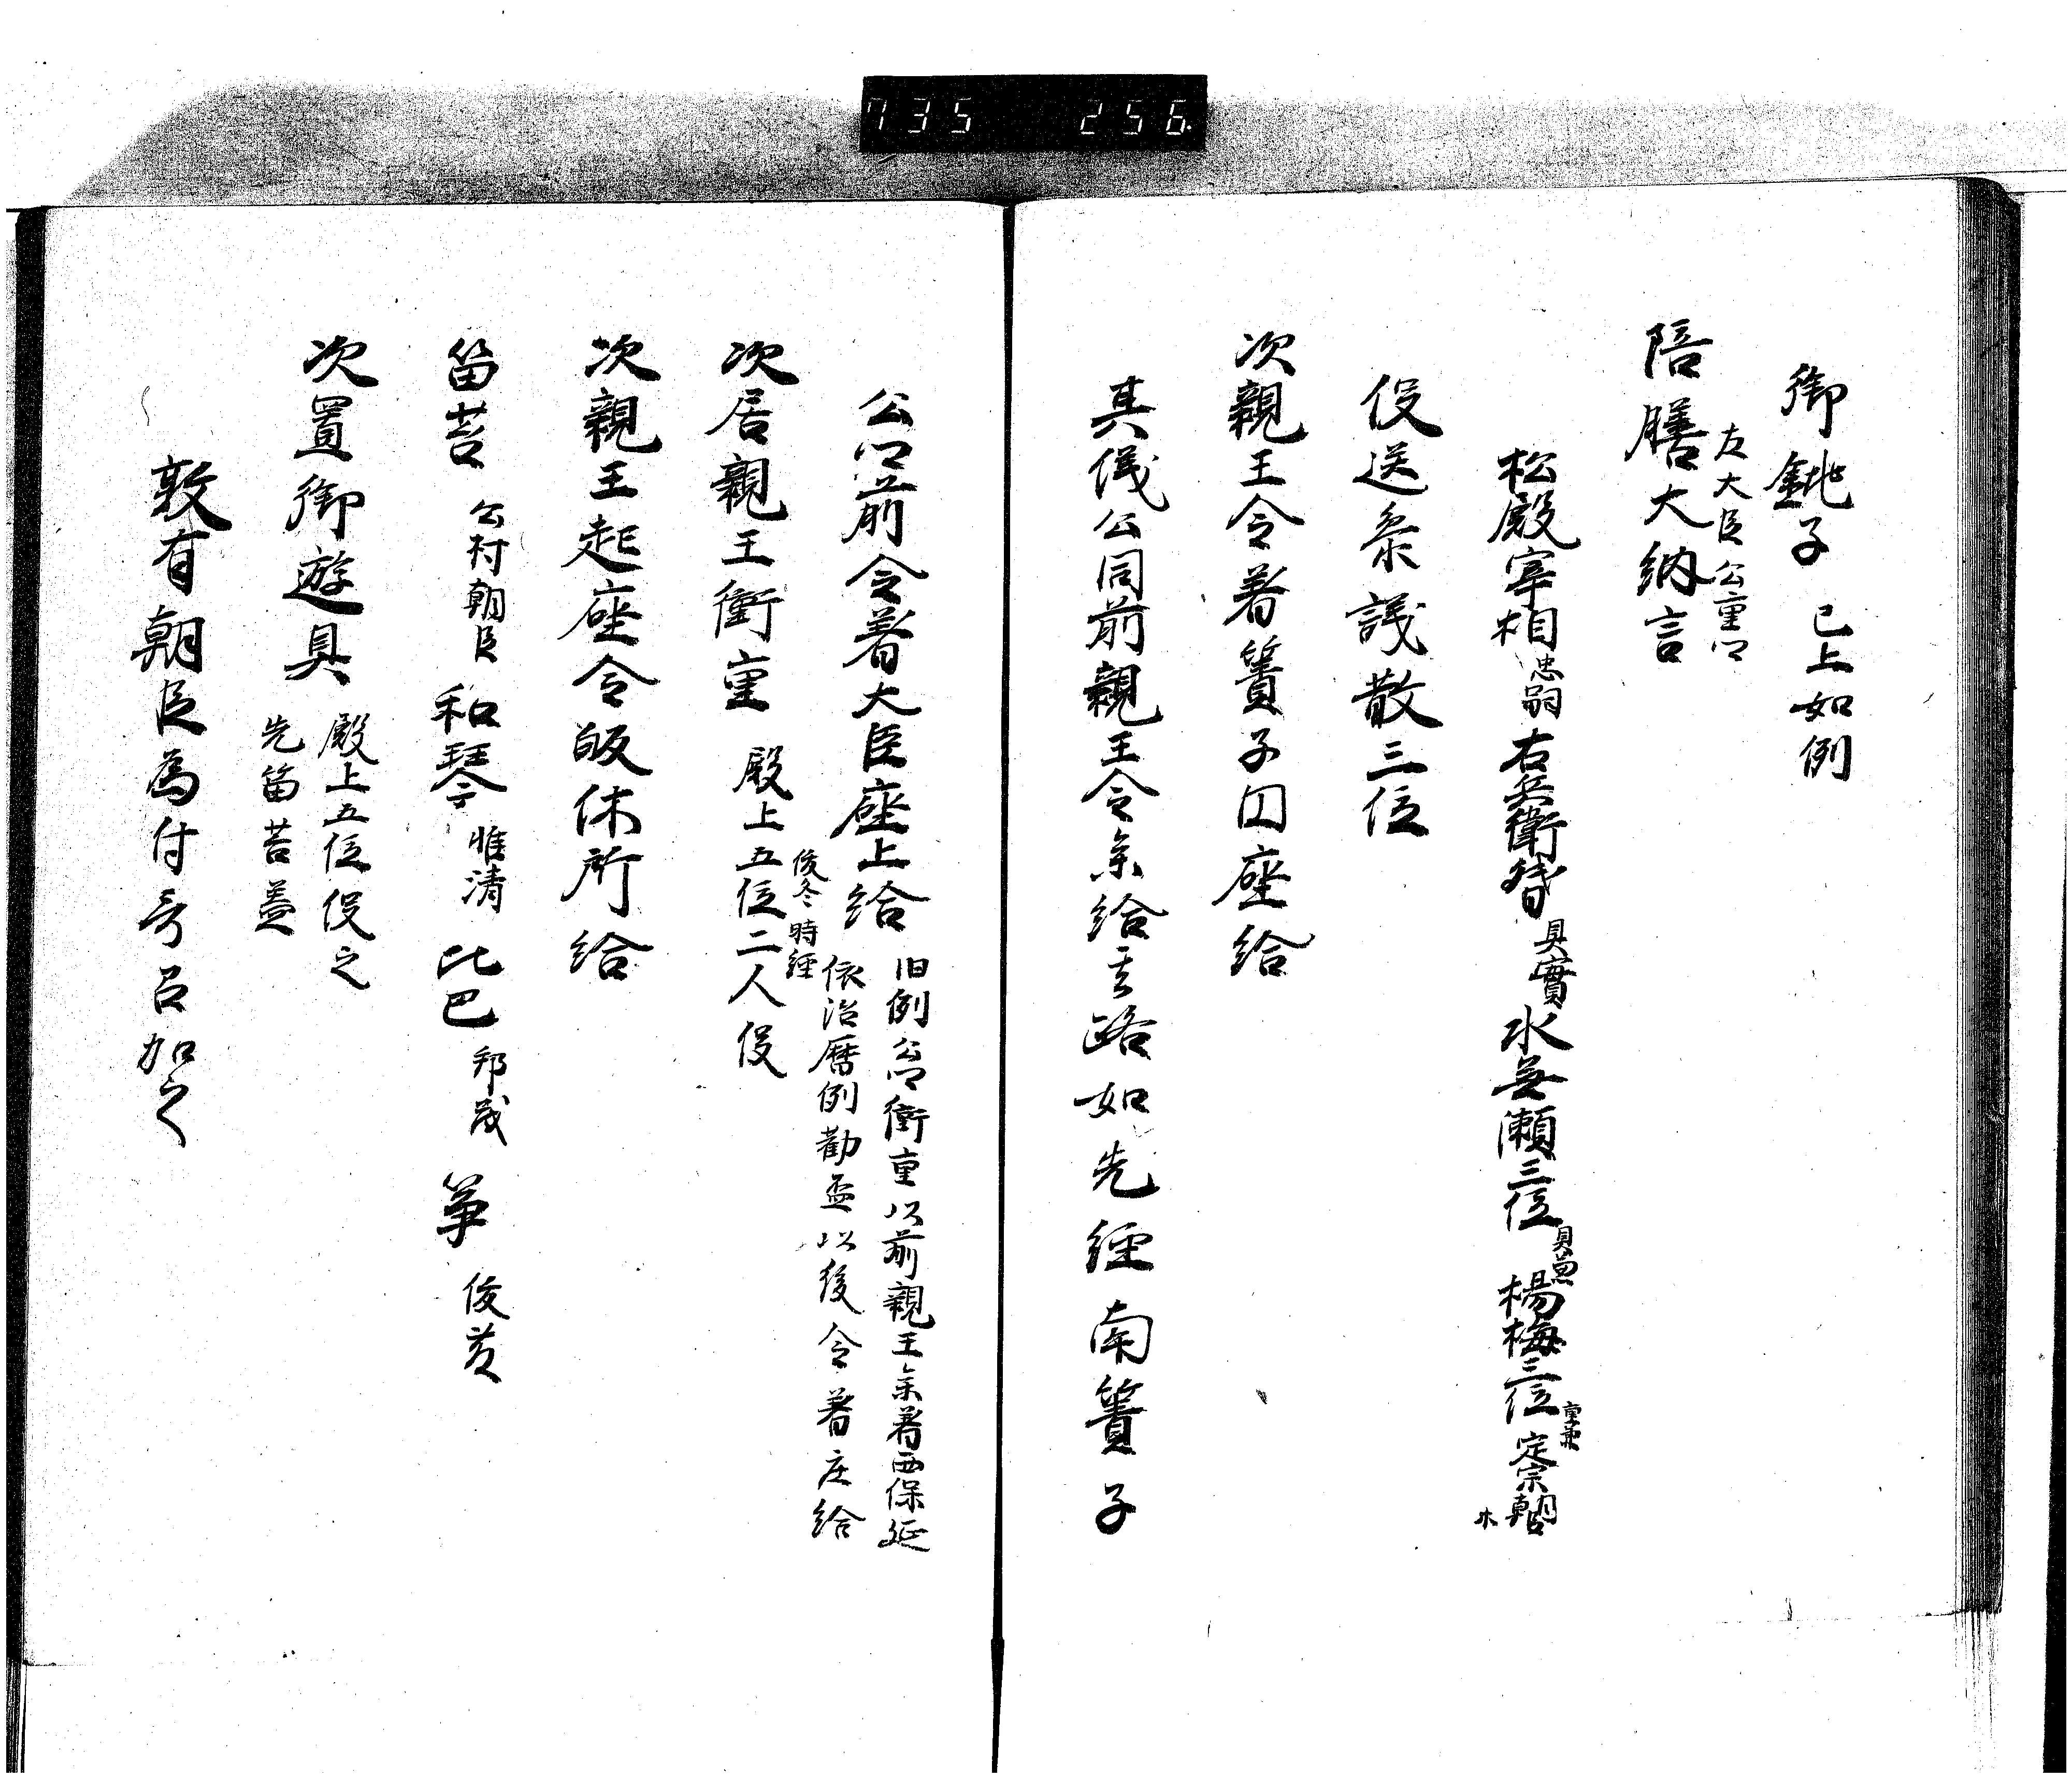 735 256
御銚子 已上如例
陪膳大納言
左大臣公重公
松殿宰相忠嗣右兵衛督具實水無瀬三位具兼楊梅三位重兼定宗朝臣
役送参議散三位
次親王令着簀子円座給
其儀公同前親王令参給其路如先経南簀子
公卿前令着大臣座上給
旧例公卿衝重以前親王参着西保延
依治暦例勧盃以後令着座給
次居親王衝重 殿上五位二人役
俊冬 時経
次親王起座令皈休所給
笛莒 公村朝臣 和琴 惟清 比巴 邦茂 箏 俊茂
次置御遊具
殿上五位役之
先笛莒蓋
敦有朝臣為付哥召加之